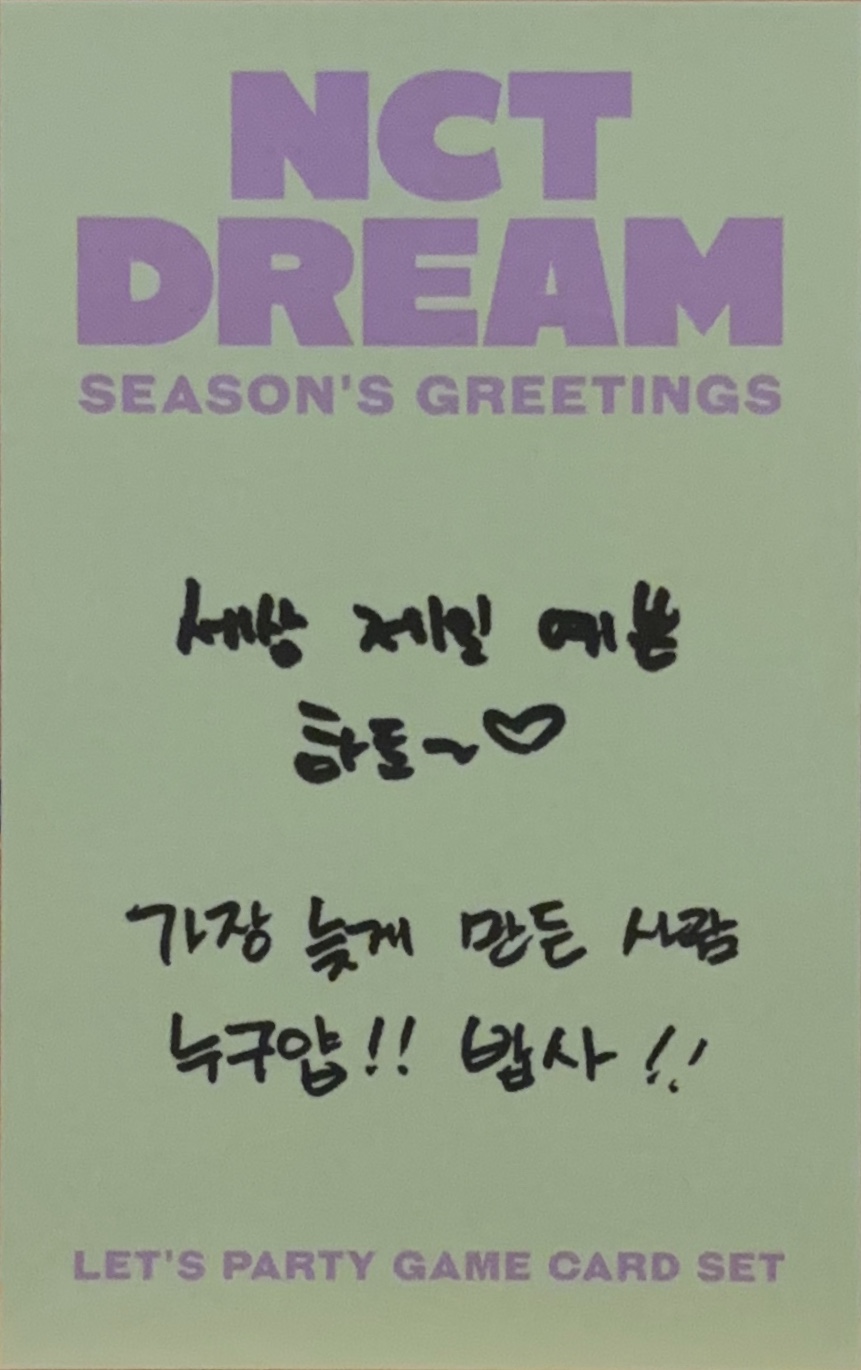 NCT
DREAM
SEASON'S GREETINGS
세상 제일 예쁜
하토~♡
가장 늦게 만든 사람
누구얍!! 밥사!!
LET'S PARTY GAME CARD SET